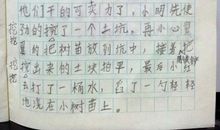 们干的可卖力了，小明先使
劲的挖了一个土坑，再小心翼
翼的把树苗放到坑中，接着把
挖出来的土块拍平，最后小红
去打了一桶水，舀了一勺轻轻
地浇在小树苗上。